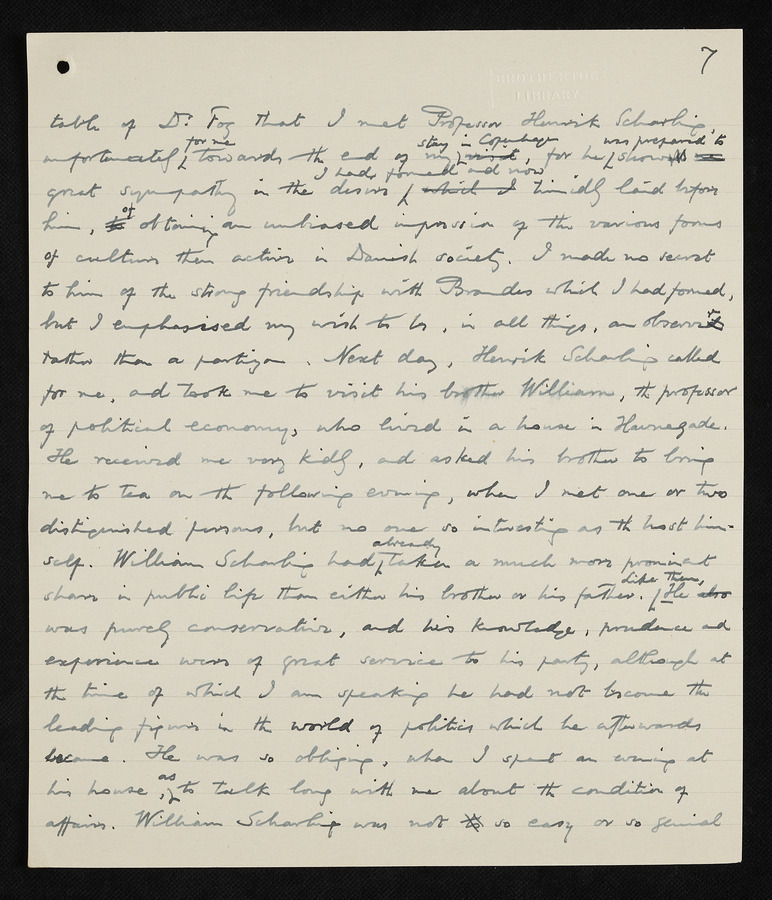 7
BROTHERTON
LIBRARY
table of Dr. Fog that I met Professor Henrik Scharling,
for me stay in Copenhagen was prepared to
unfortunately, towards the end of my visit, for he show
I had formed and now
great sympathy in the desire which I timidly laid before
of
him, to obtaining an unbiased impression of the various forms
of culture then active in Danish society. I made no secret
to him of the strong friendship with Brandes which I had formed,
but I emphasised my wish to be, in all things, an observer
rather than a partizan. Next day, Henrik Scharling called
for me, and took me to visit his brother William, the professor
of political economy, who lived in a house in Havnegade.
He received me very kindly, and asked his brother to bring
me to tea on the following evening, when I met one or two
distinguished persons, but no one so interesting as the host him-
already
self. William Scharling had taken a much more prominent
Like them,
share in public life than either his brother or his father. He also
was purely conservative, and his knowledge, prudence and
experience were of great service to his party, although at
the time of which I am speaking he had not become the
leading figure in the world of politics which he afterwards
became. He was so obliging, when I spent an evening at
as
his house, to talk long with me about the condition of
affairs. William Scharling was not so easy or so genial